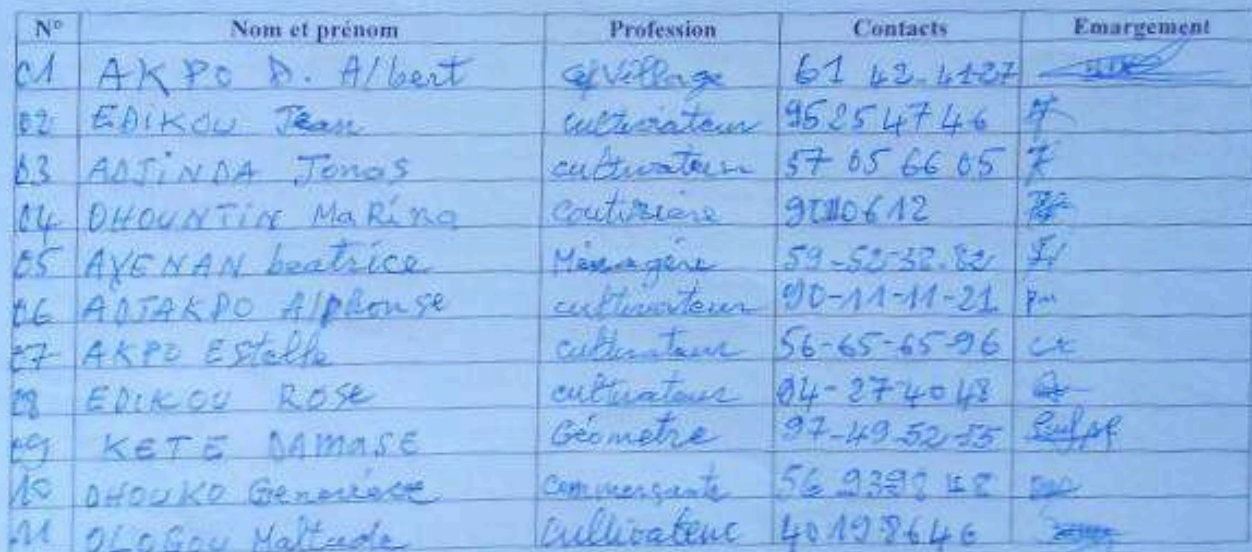 N° Nom et prénom Profession Contacts Emargement
01 AKPO D. Albert village 61 42-41-27
02 EDIKOU Jean cultivateur 95 25 47 46
03 ADJINDA Jonas cultivateur 57 05 66 05
04 DHOUNTIN MaRina
05 AYENAN beatrice Ménagère 59-52-32-82
06 ADJAKPO Alphonse cultivateur 90-11-11-21
07 AKPO Estelle cultivateur 56-65-65-96
08 EDIKOU ROSE cultivateur 94-27-40 48
09 KETE DAMASE Géometre 97-49-52-55
10 DHOUKO commerçante
11 OLOGOU cultivateur 40 19 86 46